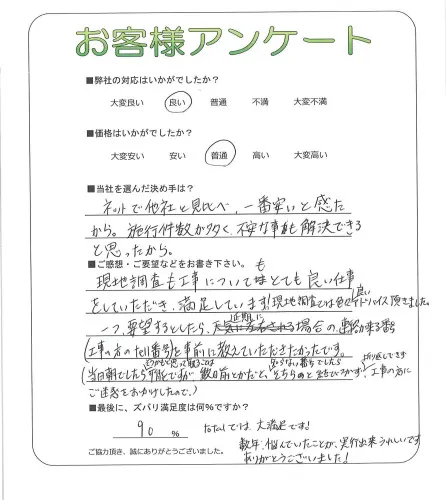 お客様アンケート
■弊社の対応はいかがでしたか？
大変良い 良い 普通 不満 大変不満
■価格はいかがでしたか？
大変安い 安い 普通 高い 大変高い
■当社を選んだ決め手は？
ネットで他社と見比べ、一番安いと感た
から。施行件数が多く、不安な事も解決できる
と思ったから。
■ご感想・ご要望などをお書き下さい。
現地調査も工事についてもとても良い仕事
をしていただき、満足しています！現地調査では良いアドバイス頂きました。
一つ、要望するとしたら、天気に左右される場合の連絡が来る番
(工事の方のtel番号)を事前に教えていただきたかったです。
(当日朝でしたら可能ですが、数日前とかだと、
ご迷惑をおかけしたので。)
■最後に、ズバリ満足度は何％ですか？
90 ％
大満足です！
数年、悩んでいたことが、実行出来うれしいです
ありがとうございました！
ご協力頂き、誠にありがとうございました。